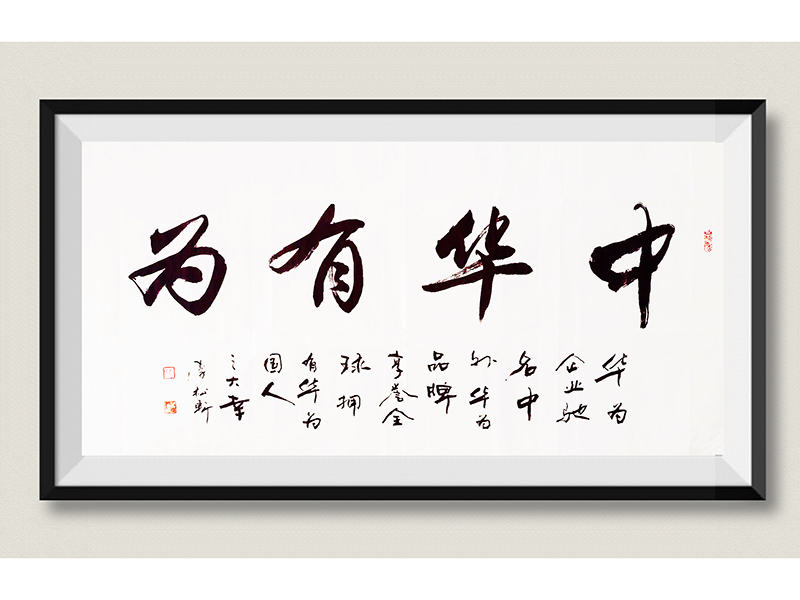 中华有为
华为
企业驰
名中
外华为
品牌
享誉全
球拥
有华为
国人
之大幸